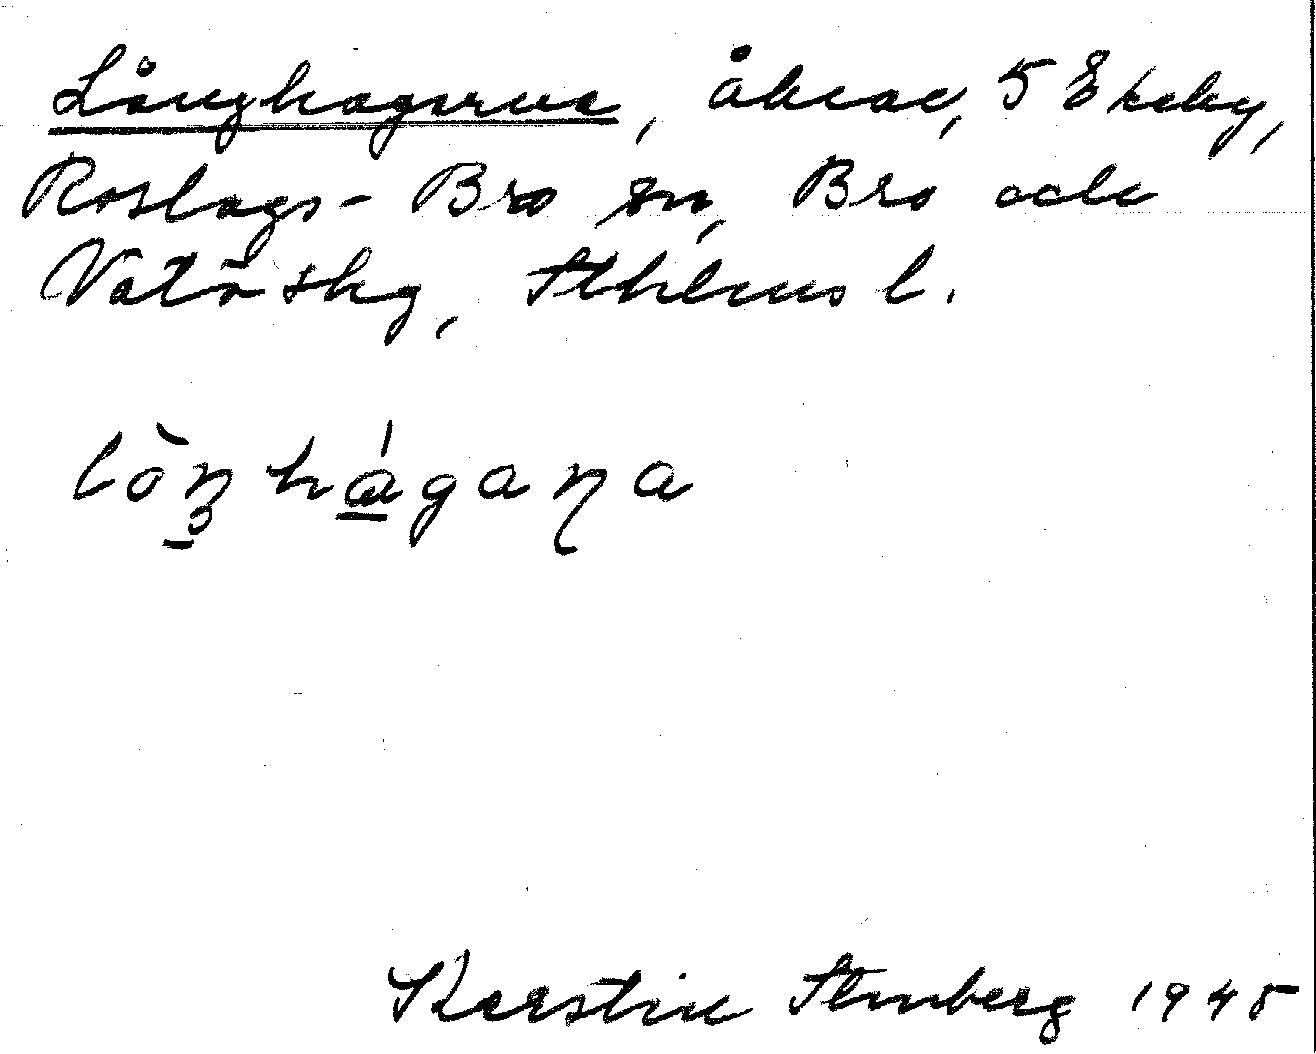 Långhagarna, åkrar, 5 Ekeby,
Roslags-Bro sn, Bro och
Vätö skg, Sthlms l.
Kerstin Stenberg 1945